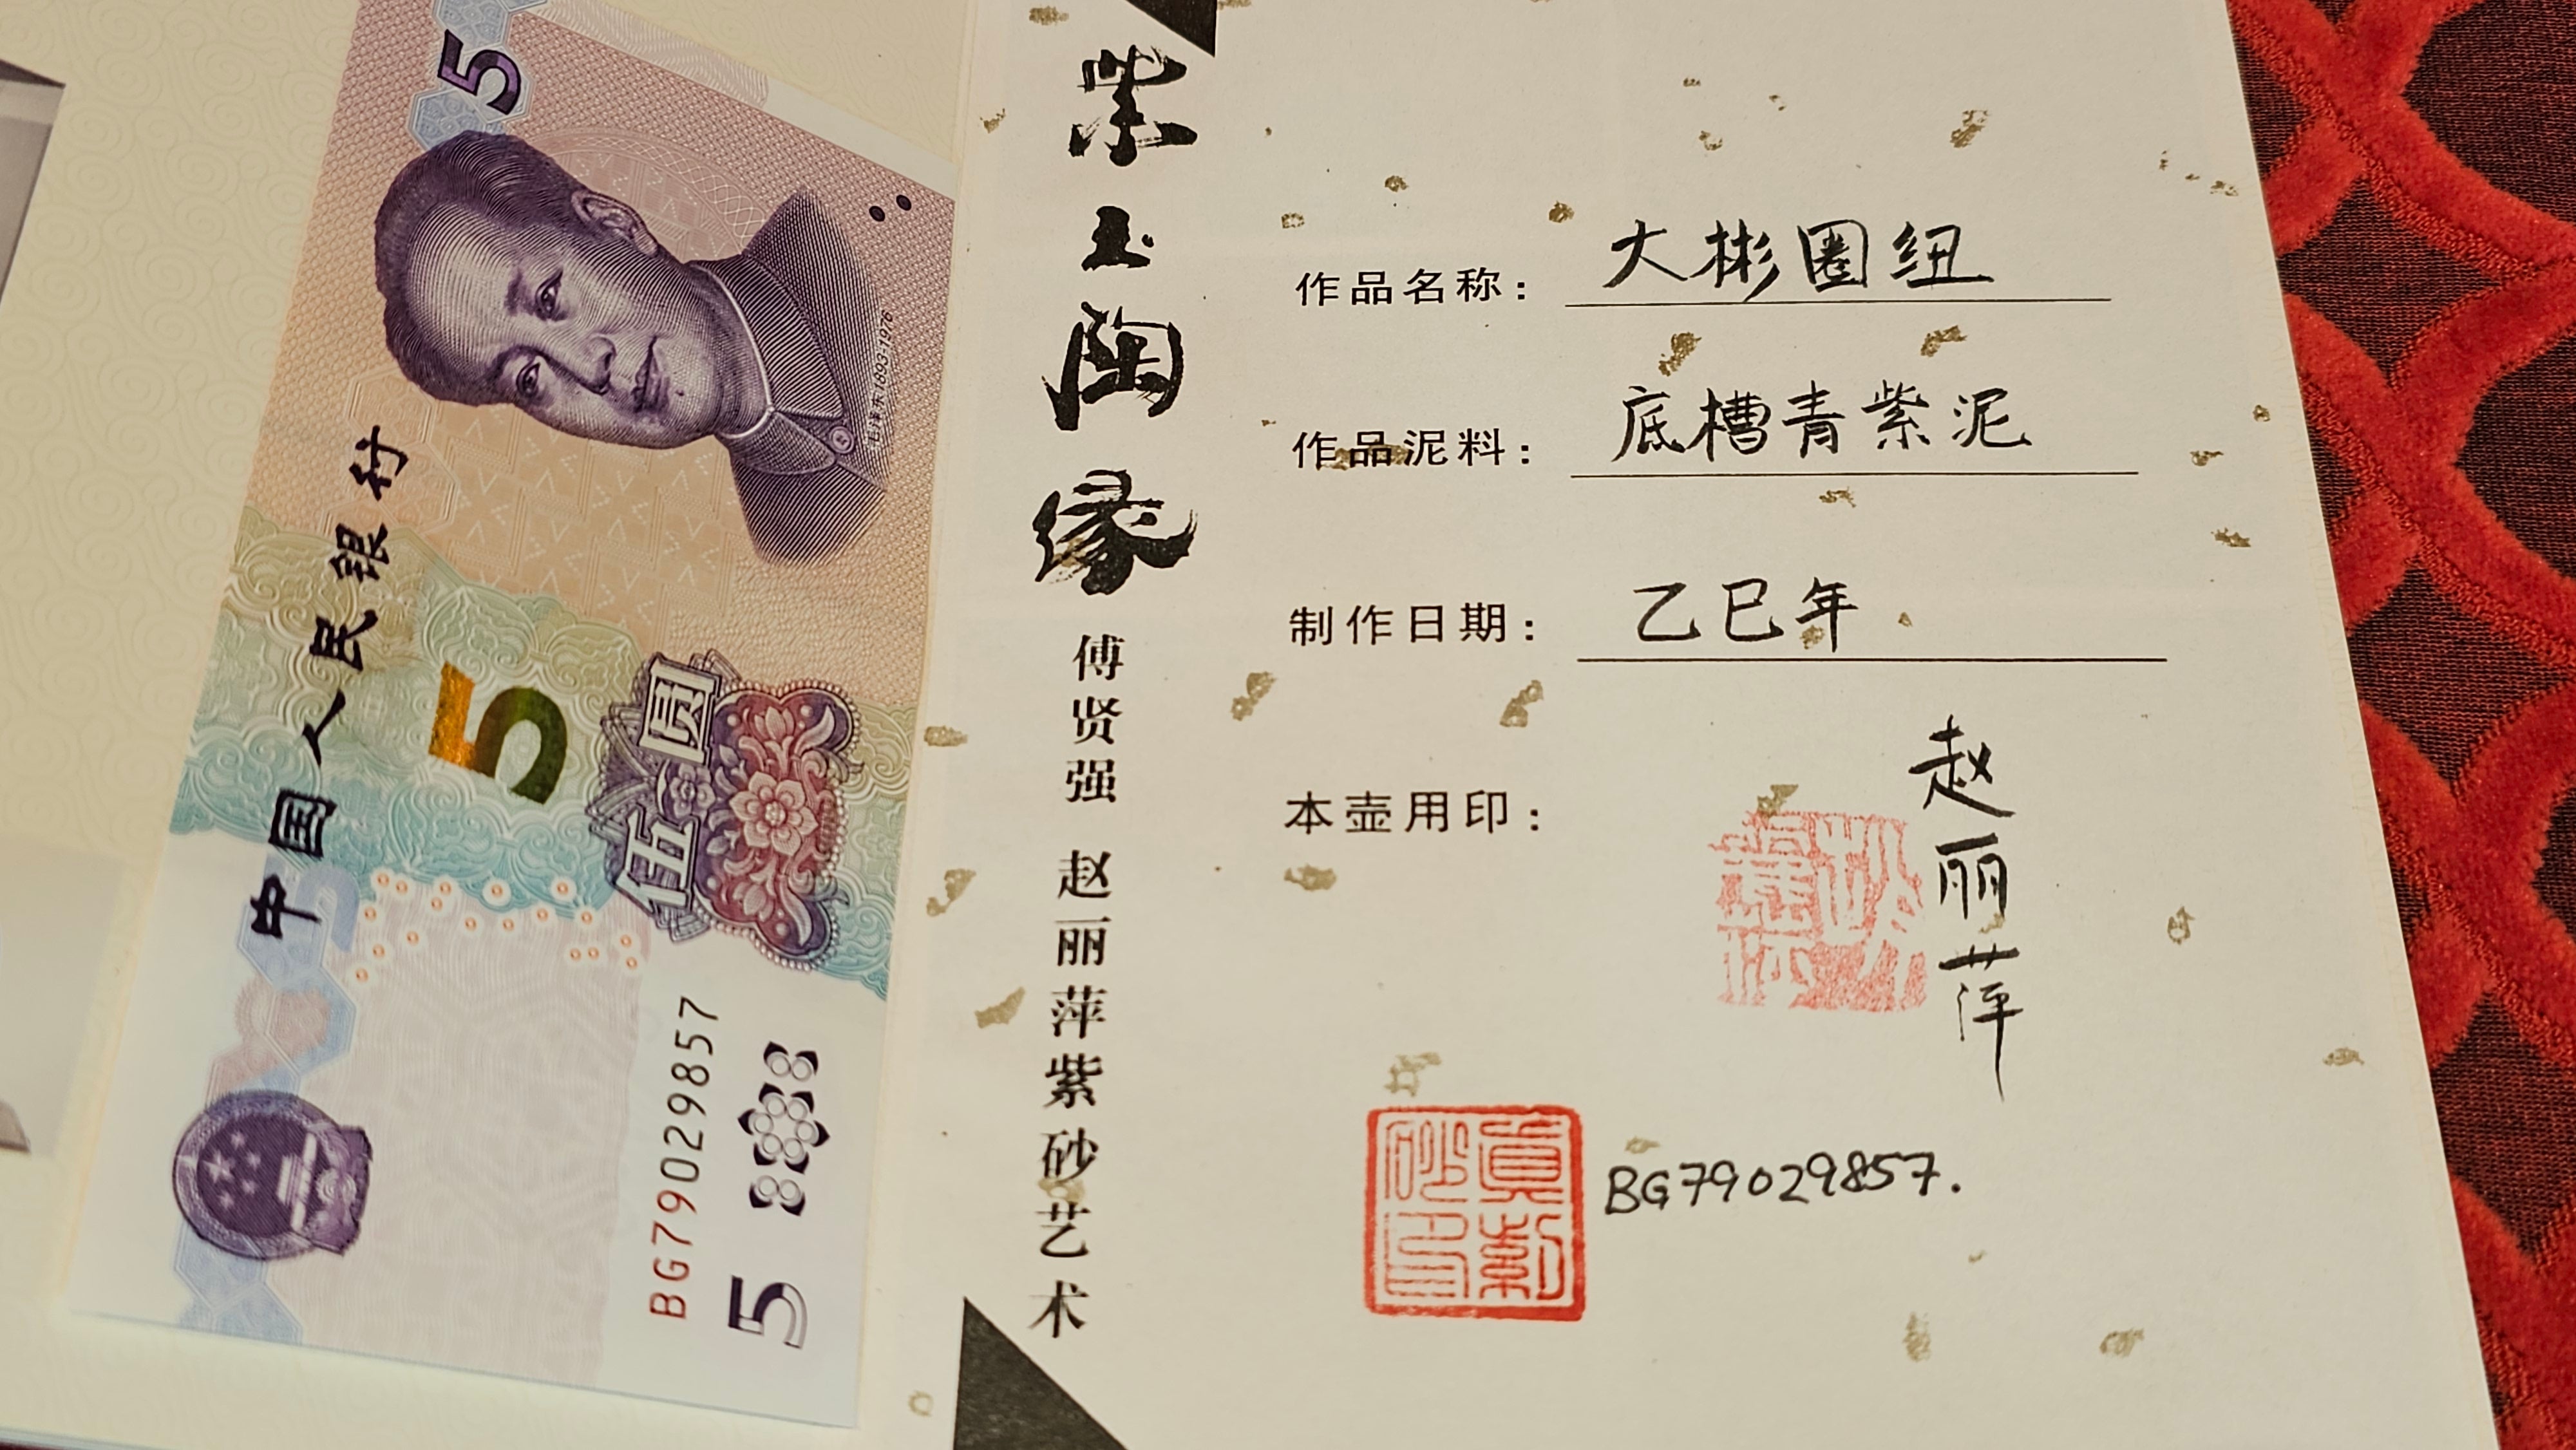 中国人民银行
5
5
伍圆
毛泽东 1893-1976
BG79029857
5
紫玉陶缘
傅贤强 赵丽萍紫砂艺术
作品名称：大彬圈纽
作品泥料：底槽青紫泥
制作日期：乙巳年
本壶用印：
赵丽萍
真紫砂印
BG79029857.